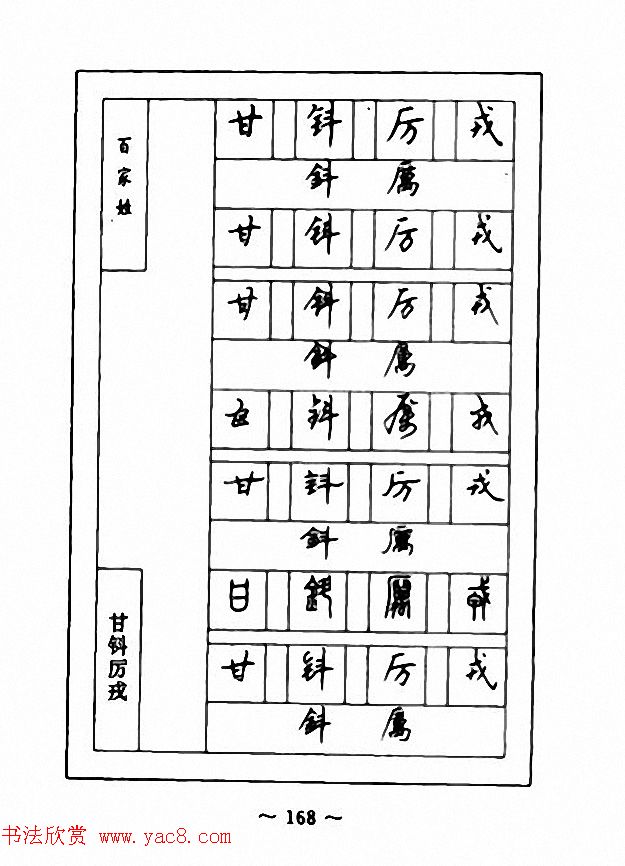 百家姓
甘钭厉戎
甘 钭 厉 戎
鈄 厲
甘 钭 厉 戎
甘 钭 厉 戎
鈄 厲
甘 钭 厉 戎
甘 钭 厉 戎
鈄 厲
甘 鈄 厲 戎
甘 钭 厉 戎
鈄 厲
~ 168 ~
书法欣赏 www.yac8.com